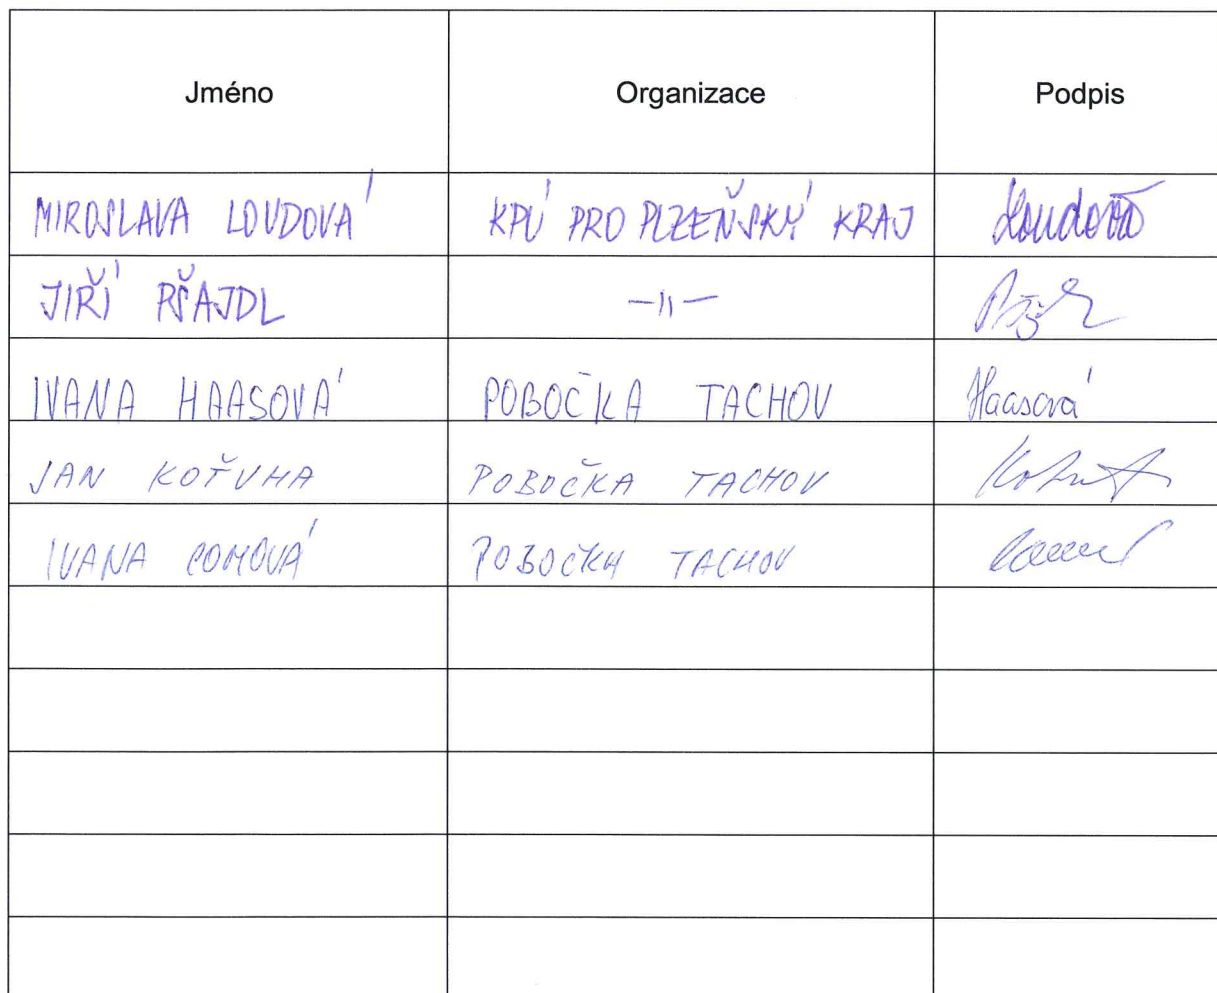 Jméno Organizace Podpis
MIROSLAVA LOUDOVÁ KPÚ PRO PLZEŇSKÝ KRAJ Loudová
JIŘÍ PŠAJDL —〃—
IVANA HAASOVÁ POBOČKA TACHOV Haasová
JAN KOŤUHA POBOČKA TACHOV
IVANA COMOVÁ POBOČKA TACHOV